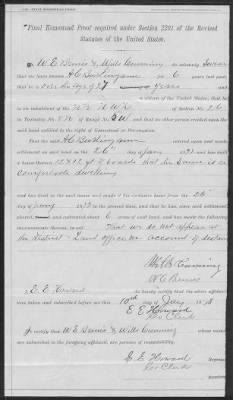 Final Homestead Proof required under Section 2291 of the Revised
Statutes of the United States.
W E Bemis & Wills Cunning do solemnly Swear
that we have known A C Burlingame for 6 years last past;
that he is over the age of 27 years and
a citizen of the United States;
is an inhabitant of the N 1/2 N W 1/4 of Section No. 26
Township No. 8 N of Range No. 5 W and that no other person resided upon the
said land entitled to the right of Homestead or Pre-emption.
That the said A C Burlingame entered upon and made
settlement on said land on the 26 day of
a house thereon 12 X 12 ft of boards that the same is a
Comfortable dwelling
and has lived in the said house and made it his exclusive home from the 26
day of to the present time, and that he has, since said settlement,
cultivated about 6 acres of said land, and has made the following
improvements thereon, to wit: That we do not appear at
the District Land office on account of distance
I, E. E. Howard do hereby certify that the above affidavit
was taken and subscribed before me this 10th day of
E E Howard
Co Clerk
I certify that W E Bemis & Wills Cunning whose names
are subscribed to the foregoing affidavit, are persons of respectability.
E. E. Howard
Co Clerk